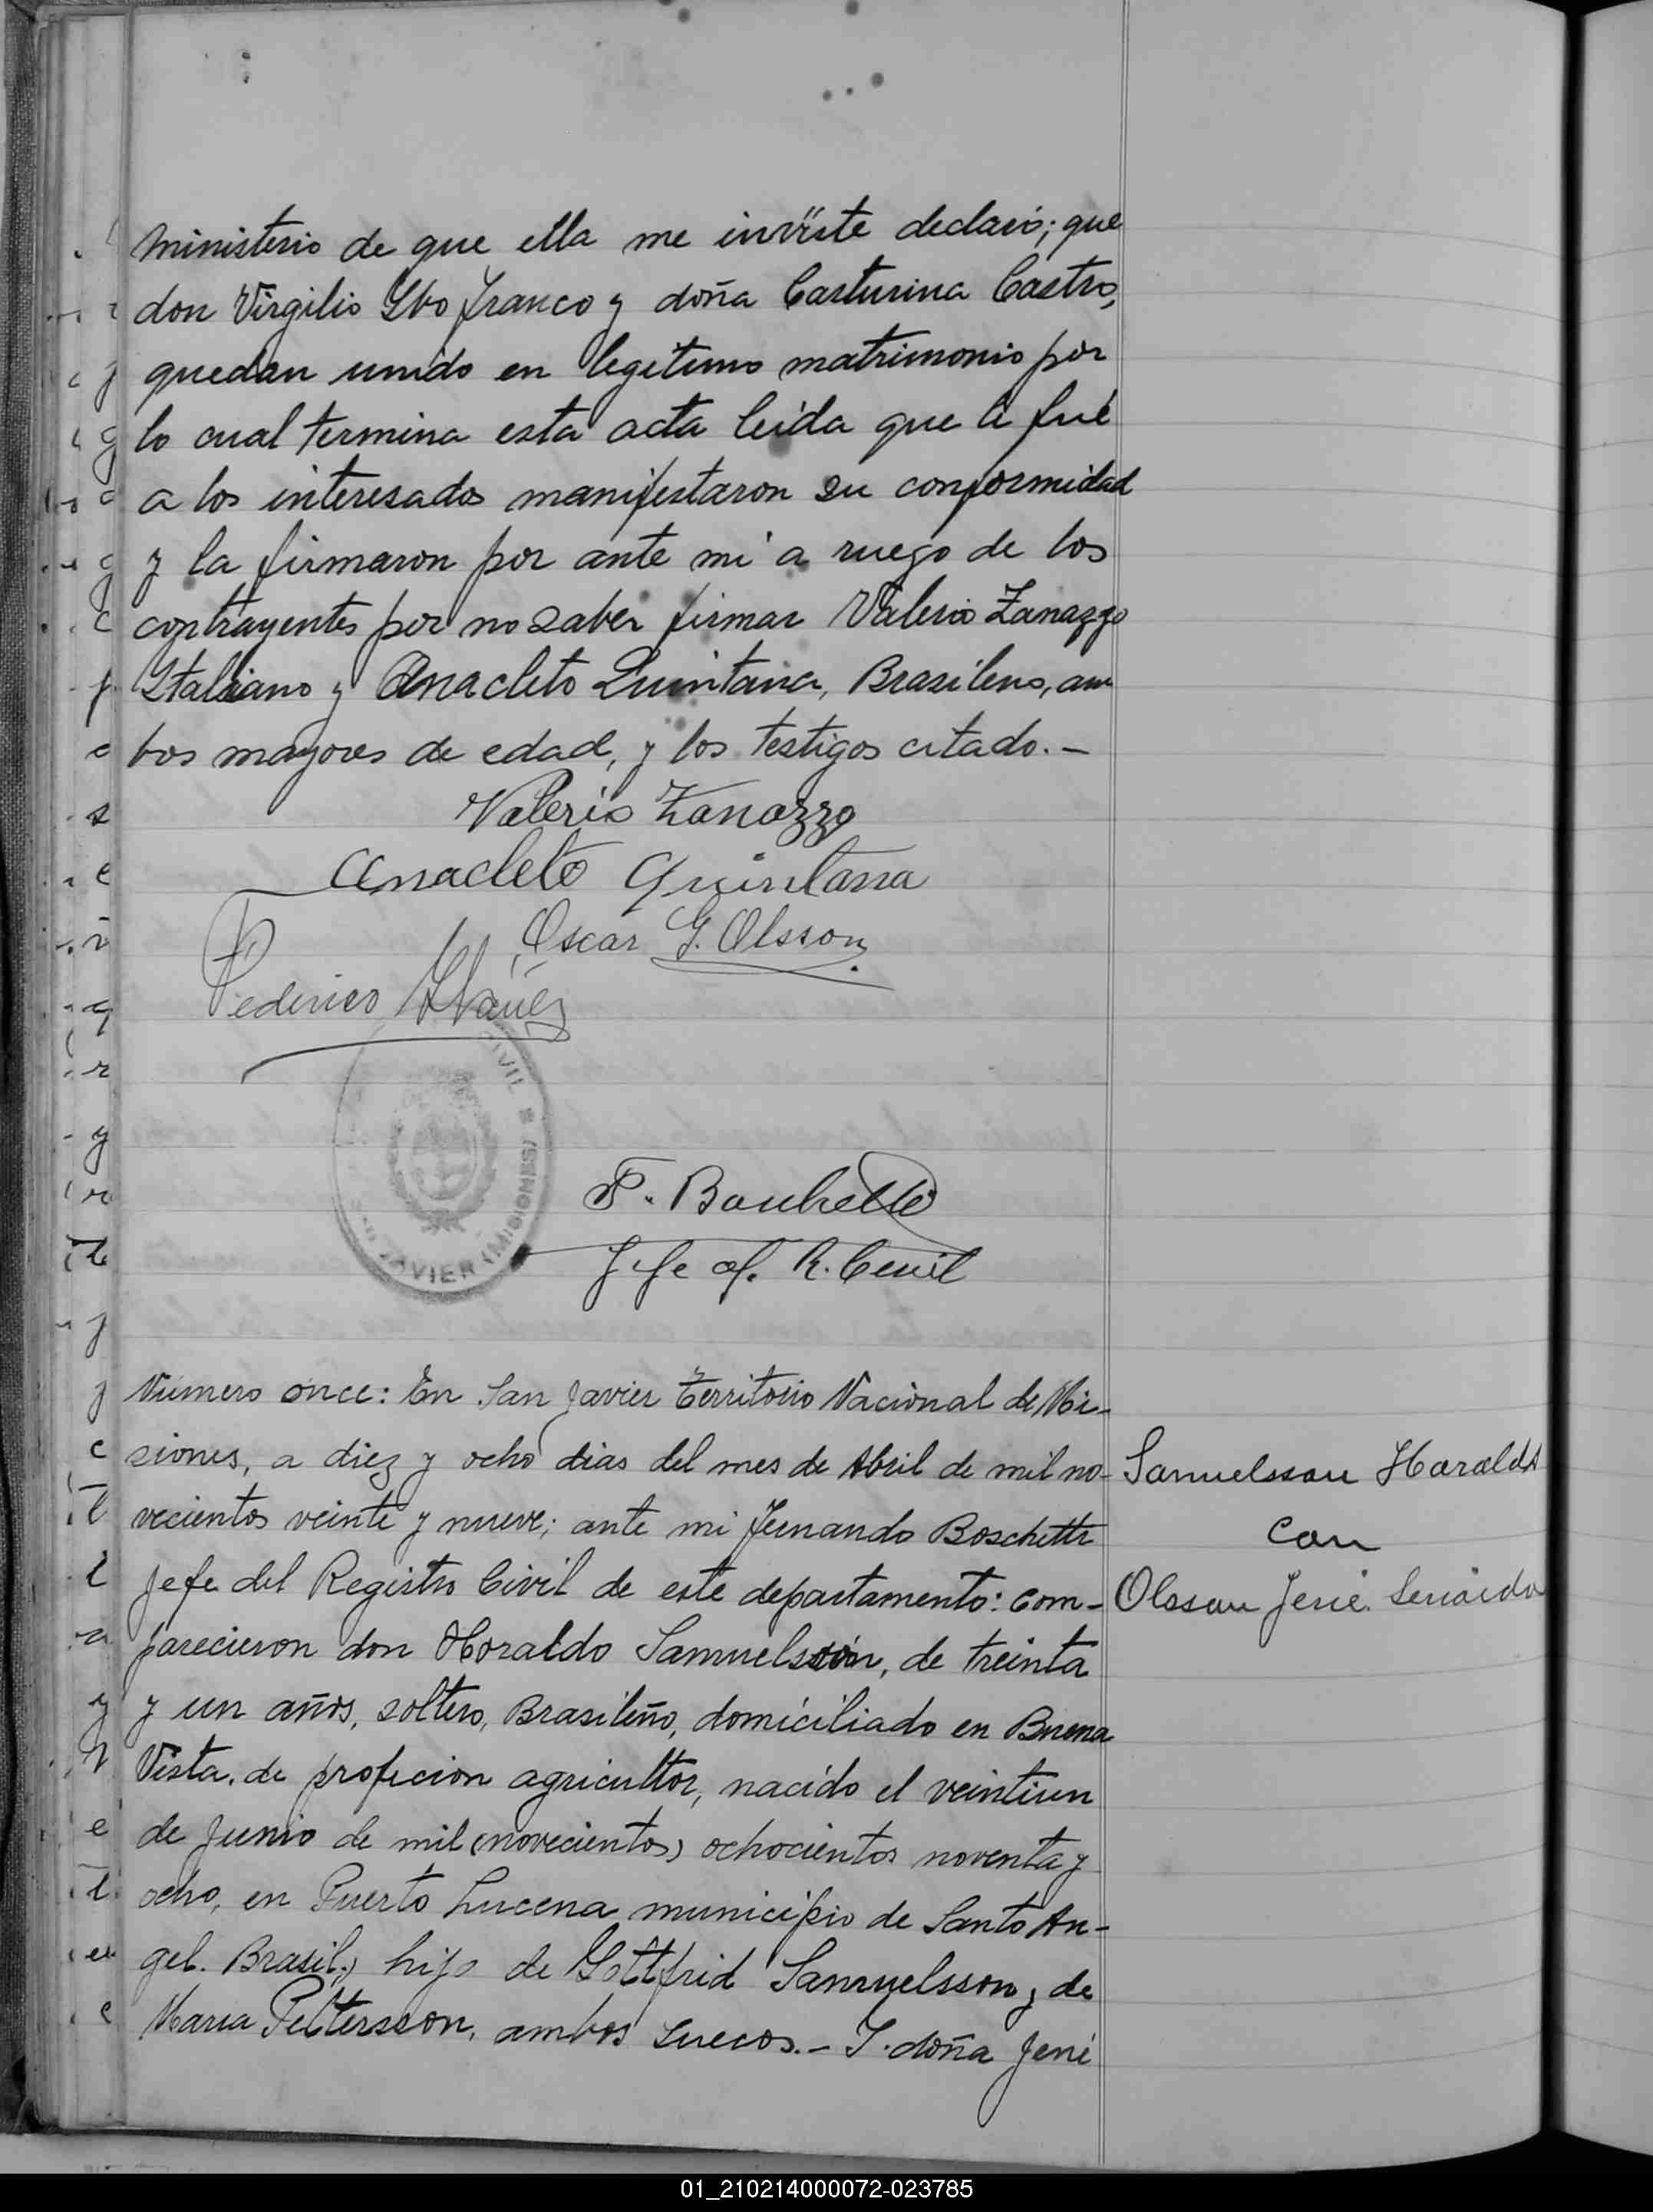 ministerio de que ella me inviste declaró; que
don Virgilio Ybo Franco y doña Casturina Castro,
quedan unido en legitimo matrimonio por
lo cual termina esta acta leida que le fué
a los interesados manifestaron su conformidad
y la firmaron por ante mi a ruego de los
contrayentes por no saber firmar Valerio Zanazzo
Italiano y Anacleto Quintana, Brasileno, am
bos mayores de edad, y los testigos citado.-
Valerio Zanazzo
Anacleto Quintana
Oscar G. Olsson
Federico
CIVIL
JAVIER (MISIONES)
F. Boschetti
Jefe of. R. Civil
Número once: En San Javier Territorio Nacional de Mi-
siones, a diez y ocho dias del mes de Abril de mil no-
vecientos veinte y nueve; ante mi Fernando Boschetti
Jefe del Registro Civil de este departamento: com-
parecieron don Horaldo Samuelsson, de treinta
y un años, soltero, Brasileño, domiciliado en Buena
Vista, de profecion agricultor, nacido el veintiun
de Junio de mil (novecientos) ochocientos noventa y
ocho, en Puerto Lucena municipio de Santo An-
gel. Brasil;) hijo de Gottfrid Samuelsson y de
Maria Pettersson, ambos suecos.- Y doña Jené
Samuelsson Haraldo
con
Olsson Jené